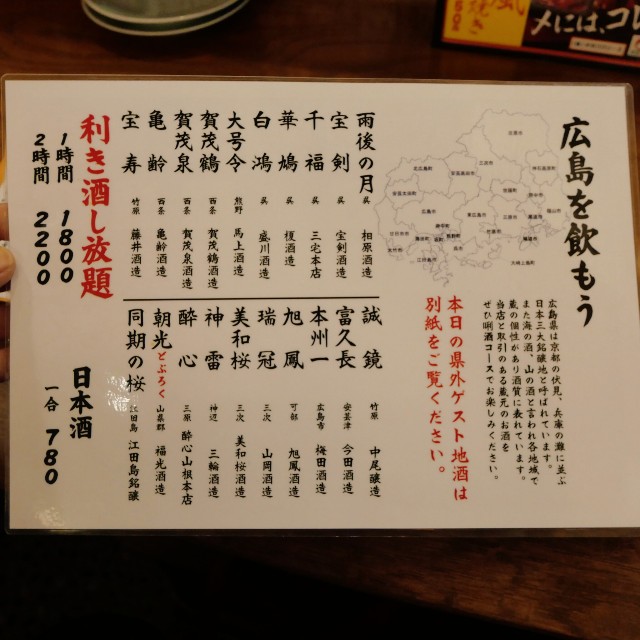 広島を飲もう
広島県は京都の伏見、兵庫の灘に並ぶ
日本三大銘醸地と呼ばれています。
また海の酒、山の酒と言われ各地域で
蔵の個性があり酒質に表れています。
当店と取引のある蔵元のお酒を
ぜひ唎酒コースでお楽しみください。
本日の県外ゲスト地酒は
別紙をご覧ください。
雨後の月 呉 相原酒造
宝剣 呉 宝剣酒造
千福 呉 三宅本店
華鳩 呉 榎酒造
白鴻 呉 盛川酒造
大号令 熊野 馬上酒造
賀茂鶴 西条 賀茂鶴酒造
賀茂泉 西条 賀茂泉酒造
亀齢 西条 亀齢酒造
宝寿 竹原 藤井酒造
誠鏡 竹原 中尾醸造
富久長 安芸津 今田酒造
本州一 広島市 梅田酒造
旭鳳 可部 旭鳳酒造
瑞冠 三次 山岡酒造
美和桜 三次 美和桜酒造
神雷 神辺 三輪酒造
酔心 三原 酔心山根本店
朝光どぶろく 山県郡 福光酒造
同期の桜 江田島 江田島銘醸
利き酒し放題
1時間 1800
2時間 2200
日本酒
一合 780
〆には、コ